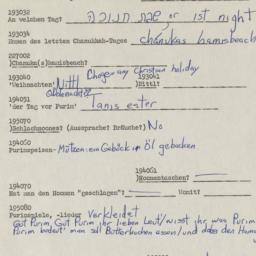 193032
An welchen Tag? שבת חנוכה or 1st night
193034
Namen des letzten Chanukkah-Tages chanukas hamisbeach
227002
)Chamshe(n)hamisbesch?
193040 Chagen any Christian holiday 193041
'Weihnachten' Nittl )Nittl?
194051
'der Tag vor Purim' Tanis ester
195070
)Schlachmones? (Aussprache? Bräuche?) No
194060
Purimspeisen- Matzen: ein Gebäck in Öl gebacken
194061
)Homentaschen?
194070
Hat man den Haman "geschlagen"? Womit?
195080
Purimspiele, -lieder Verkleidet
Gut Purim, Gut Purim ihr lieben Leut/wisst ihr was Purim
Purim bedeut' man soll Butterkuchen essen/und dass den Haman
193050